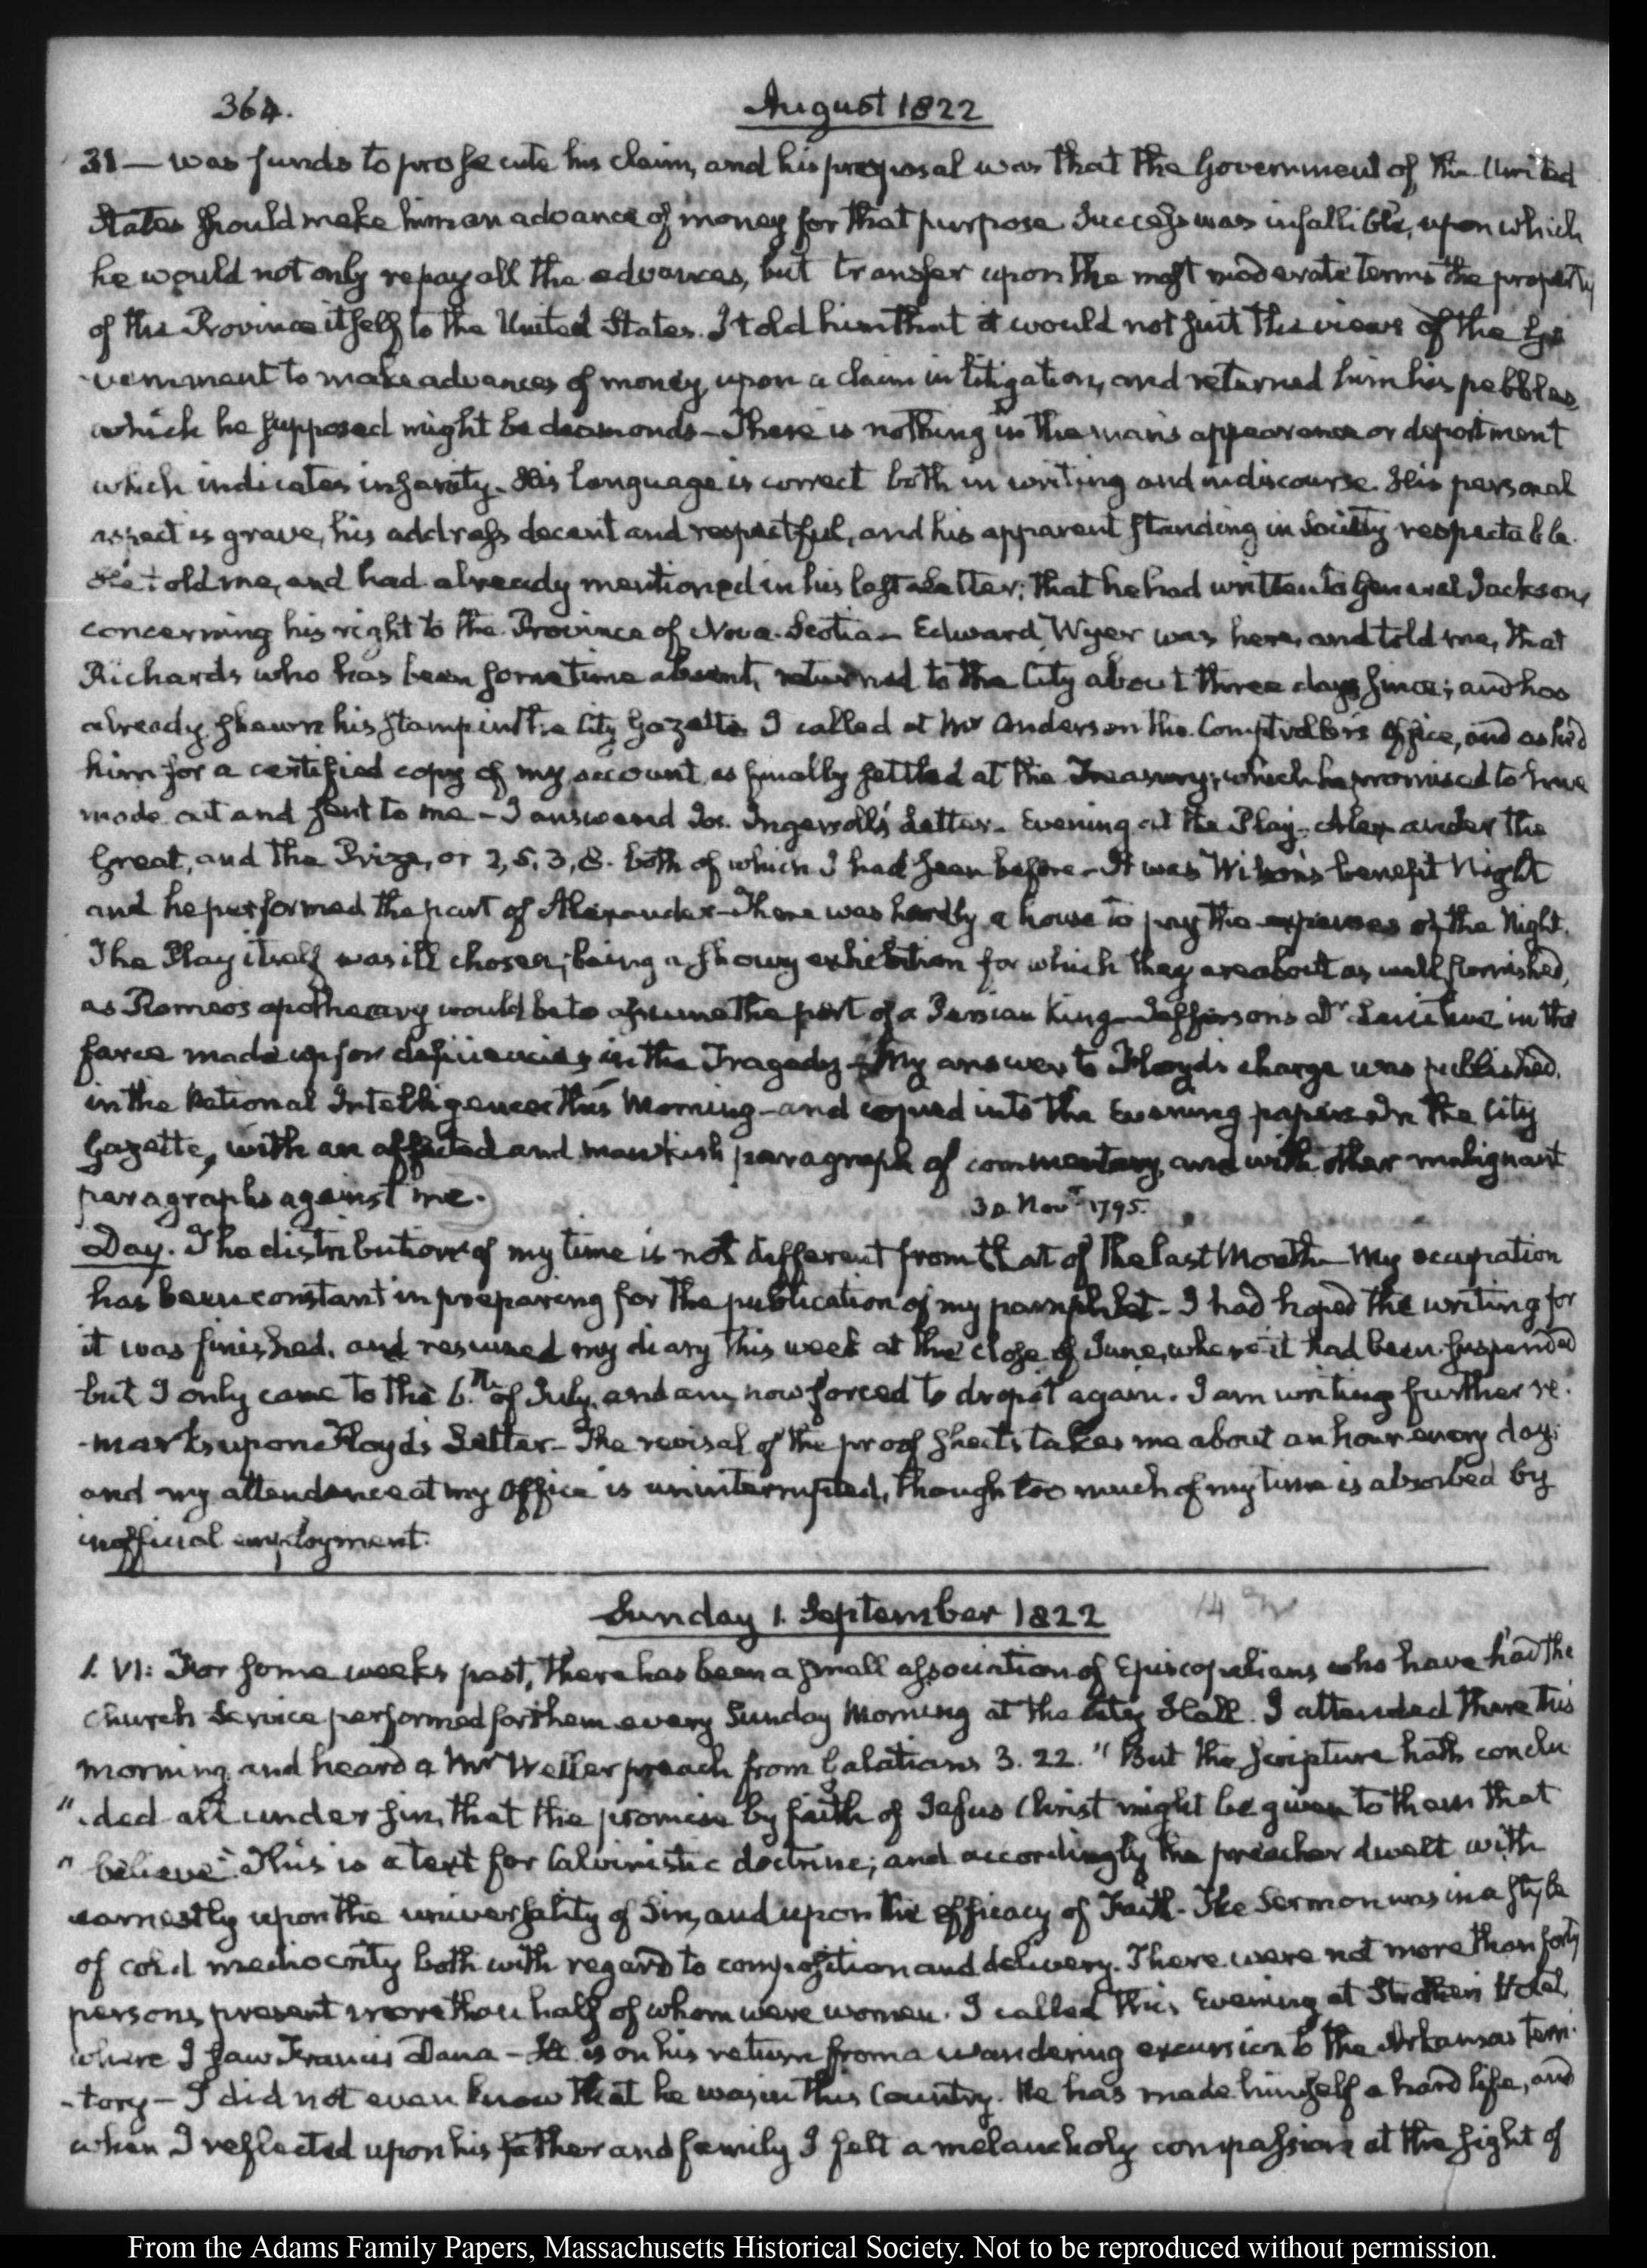 364.
August 1822
31 — was funds to prosecute his claim, and his proposal was that the Government of the United
States should make him an advance of money for that purpose. Success was infallible, upon which
he would not only repay all the advances, but transfer upon the most moderate terms the property
of the Province itself to the United States. I told him that it would not suit the views of the Go
-vernment to make advances of money, upon a claim in litigation, and returned him his pebbles,
which he supposed might be diamonds — There is nothing in the man's appearance or deportment
which indicates insanity. His language is correct both in writing and in discourse. His personal
aspect is grave, his address decent and respectful, and his apparent standing in Society respectable.
He told me, and had already mentioned in his last Letter, that he had written to General Jackson,
concerning his right to the Province of Nova-Scotia — Edward Wyer was here, and told me, that
Richards who has been sometime absent, returned to the City about three days since; and has
already shewn his stamp in the City Gazette. I called at Mr Anderson the Comptroller's Office, and asked
him for a certified copy of my account, as finally settled at the Treasury; which he promised to have
made out and sent to me — I answered Jos. Ingersoll's Letter. Evening at the Play. Alexander the
Great, and the Prize, or 2, 5, 3, 8. both of which I had seen before — It was Wilson's benefit Night
and he performed the part of Alexander — There was hardly a house to pay the expenses of the Night.
The Play itself was ill chosen; being a showy exhibition for which they are about as well furnished,
as Romeo's apothecary would be to assume the part of a Persian King — Jefferson's Dr Lenitive in the
farce made up for deficiencies in the Tragedy — My answer to Floyd's charge was published
in the National Intelligencer this Morning — and copied into the Evening papers. In the City
Gazette, with an affected and mawkish paragraph of commentary, and with other malignant
paragraphs against me.
30 Novr 1795.
Day. The distribution of my time is not different from that of the last Month — My occupation
has been constant in preparing for the publication of my pamphlet — I had hoped the writing for
it was finished, and resumed my diary this week at the close of June, where it had been suspended
but I only came to the 6.th of July, and am now forced to drop it again. I am writing further re-
-marks upon Floyd's Letter — The revisal of the proof sheets takes me about an hour every day;
and my attendance at my Office is uninterrupted, though too much of my time is absorbed by
inofficial employment.
Sunday 1. September 1822
1. VI: For some weeks past, there has been a small association of Episcopalians who have had the
Church Service performed for them every Sunday Morning at the City Hall. I attended there this
morning, and heard a Mr Weller preach from Galatians 3. 22. "But the Scripture hath conclu
".ded all under sin, that the promise by faith of Jesus Christ might be given to them that
" believe". This is a text for Calvinistic doctrine; and accordingly the preacher dwelt with
earnestly upon the universality of Sin, and upon the efficacy of Faith — The Sermon was in a style
of cold mediocrity both with regard to composition and delivery. There were not more than forty
persons present more than half of whom were women. I called this Evening at Strother's Hotel,
where I saw Francis Dana — He is on his return from a wandering excursion to the Arkansas Terri-
-tory — I did not even know that he was in this Country. He has made himself a hard life, and
when I reflected upon his father and family I felt a melancholy compassion at the sight of
From the Adams Family Papers, Massachusetts Historical Society. Not to be reproduced without permission.